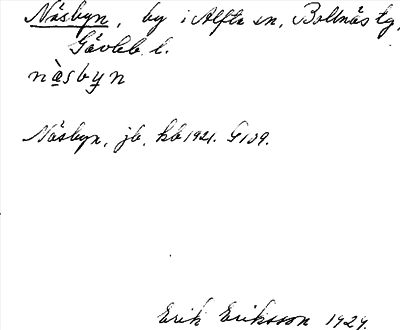 Näsbyn, by i Alfta sn, Bollnäs tg,
Gävleb. l.
nàsbyn
Näsbyn, jb, kb 1921. G 109.
Erik Eriksson 1929.